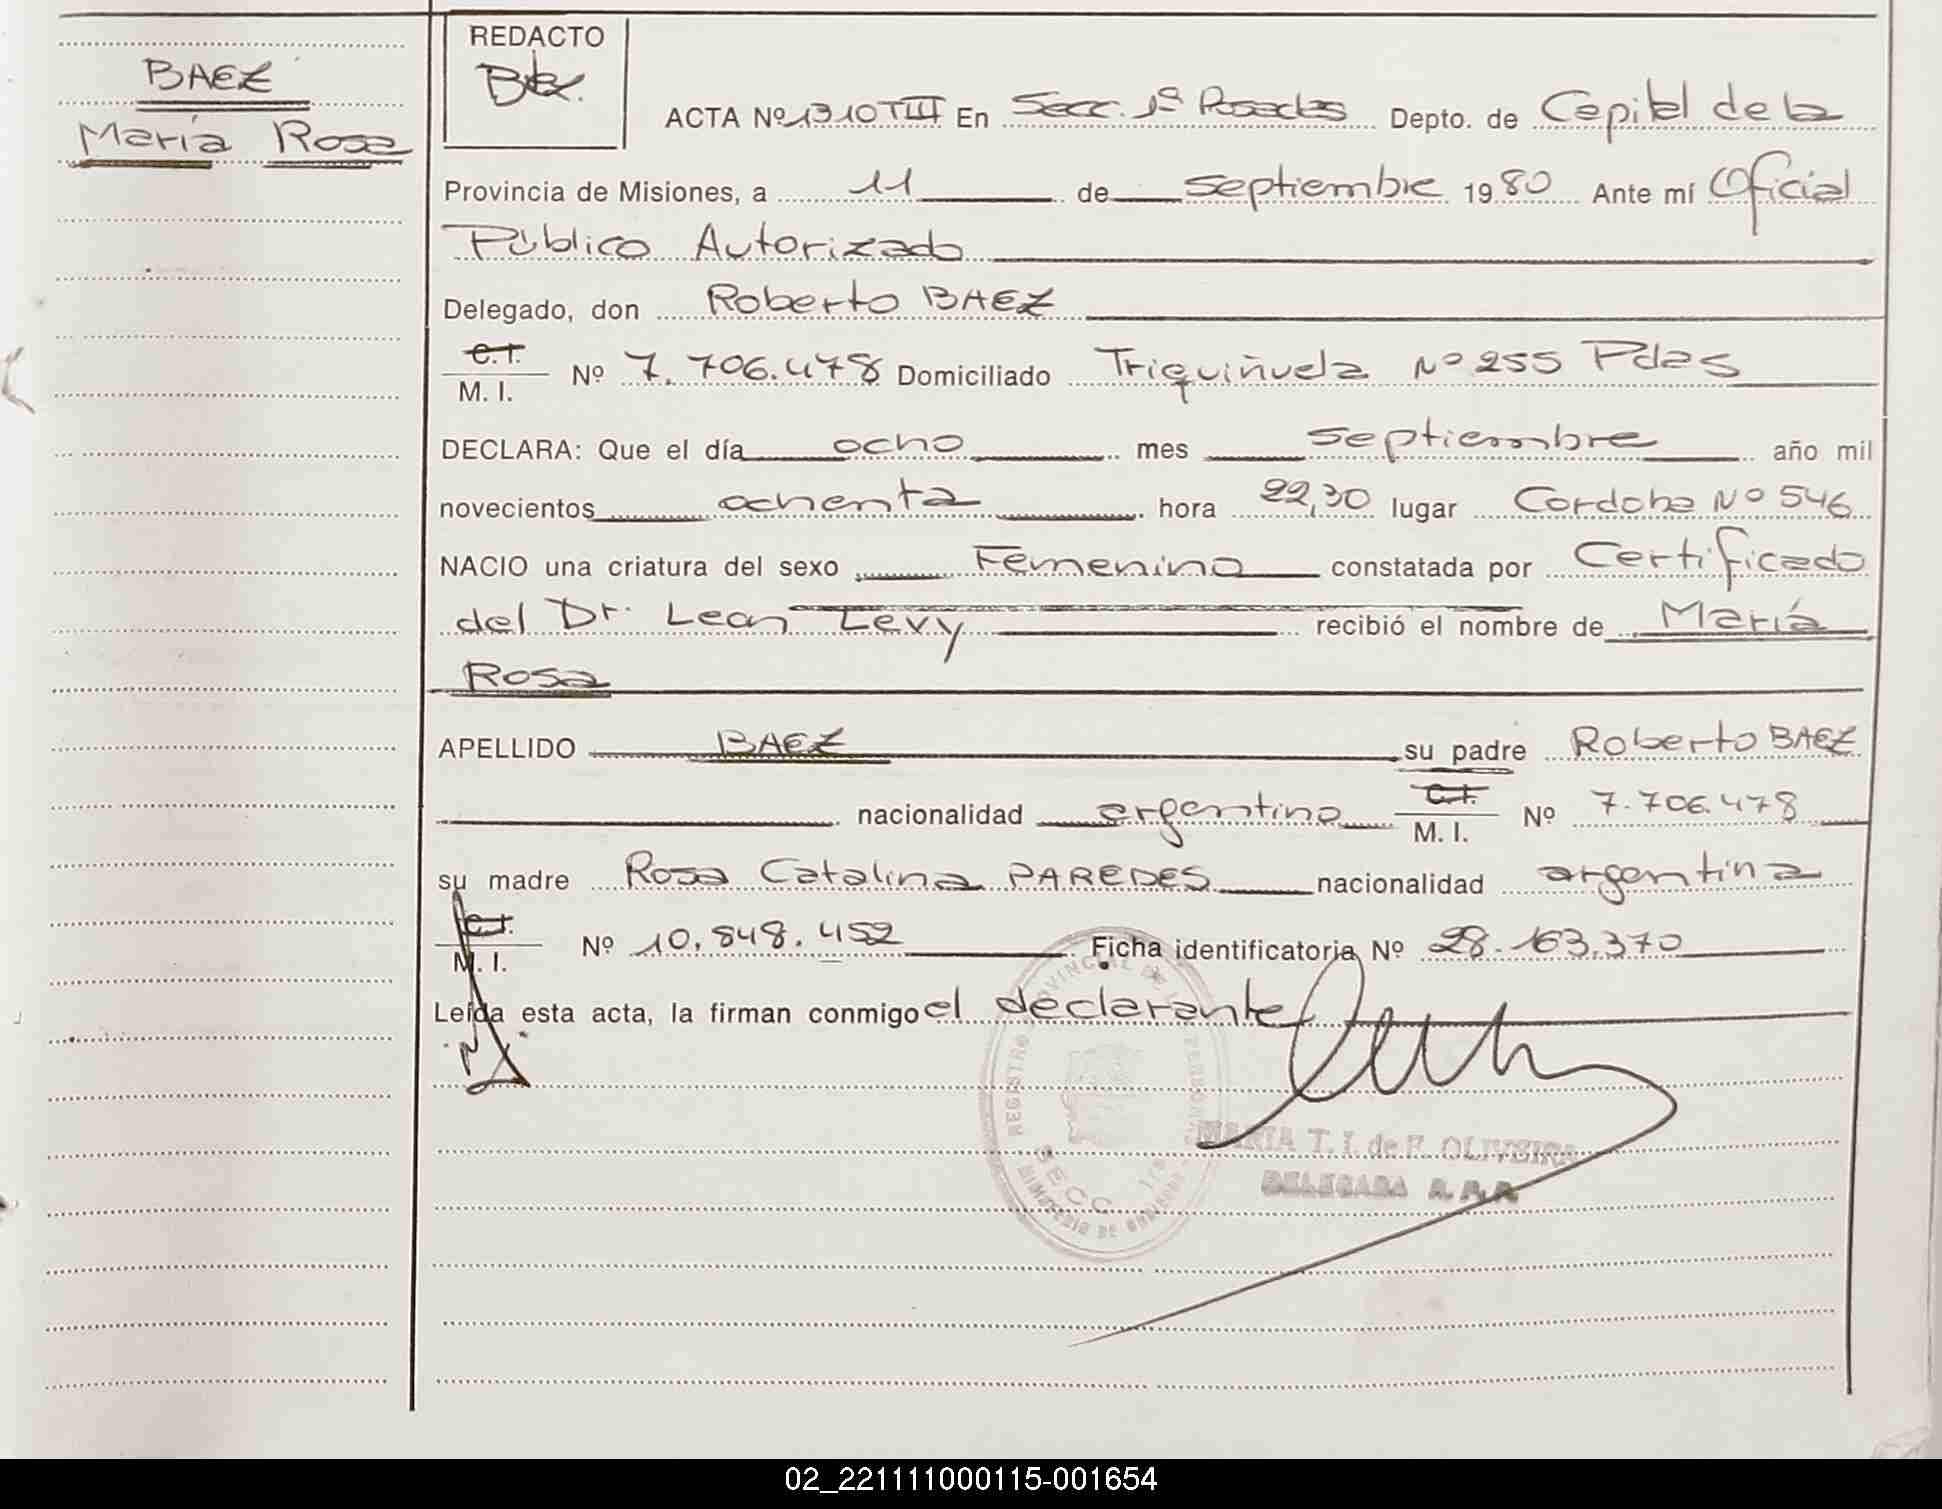 BAEZ
María Rosa
REDACTO
ACTA Nº 1310 TIII En Secc. 1ª Posadas Depto. de Capital de la
Provincia de Misiones, a 11 de septiembre 1980 Ante mí Oficial
Público Autorizado
Delegado, don Roberto BAEZ
C.I.
M. I. Nº 7.706.478 Domiciliado Triquiñuela Nº 255 Pdas
DECLARA: Que el día ocho mes septiembre año mil
novecientos ochenta hora 22,30 lugar Cordoba Nº 546
NACIO una criatura del sexo Femenino constatada por Certificado
del Dr. Lean Levy recibió el nombre de María
Rosa
APELLIDO BAEZ su padre Roberto BAEZ
nacionalidad argentino C.I. M. I. Nº 7.706.478
su madre Rosa Catalina PAREDES nacionalidad argentina
C.I.
M. I. Nº 10.848.452 Ficha identificatoria Nº 28.163.370
Leída esta acta, la firman conmigo el declarante
REGISTRO PROVINCIAL DE L PERSONAS
SECC. 1ra
MINISTERIO DE GOBIERNO
MARIA T. I. de F. OLIVEIRA
DELEGADA R. P. P.
02_221111000115-001654